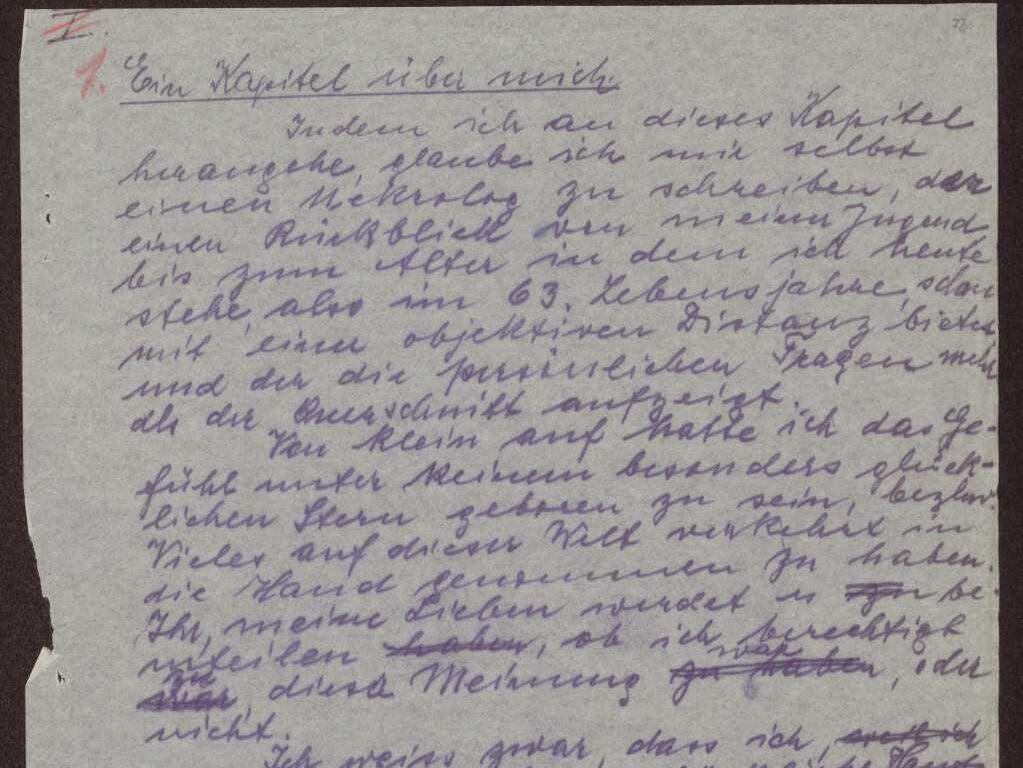 I.
73.
1. Ein Kapitel über mich
Indem ich an dieses Kapitel
herangehe, glaube ich mir selbst
einen Nekrolog zu schreiben, der
einen Rückblick von meiner Jugend
bis zum Alter in dem ich heute
stehe, also im 63. Lebensjahre, schon
mit einer objektiven Distanz bietet
und der die persönlichen Fragen mehr
als der Querschnitt aufzeigt.
Von klein auf hatte ich das Ge-
fühl unter keinem besonders glück-
lichen Stern geboren zu sein, bezhw.
Vieles auf dieser Welt verkehrt in
die Hand genommen zu haben.
Ihr, meine Lieben werdet es zu be-
urteilen haben, ob ich berechtigt
zu war
war, diese Meinung zu haben, oder
nicht.
Ich weiss zwar, dass ich,